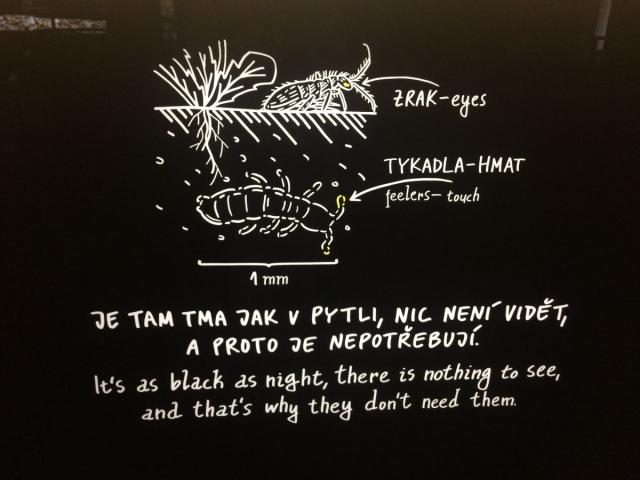 ZRAK-eyes
TYKADLA-HMAT
feelers-touch
1 mm
JE TAM TMA JAK V PYTLI, NIC NENÍ VIDĚT,
A PROTO JE NEPOTŘEBUJÍ.
It's as black as night, there is nothing to see,
and that's why they don't need them.